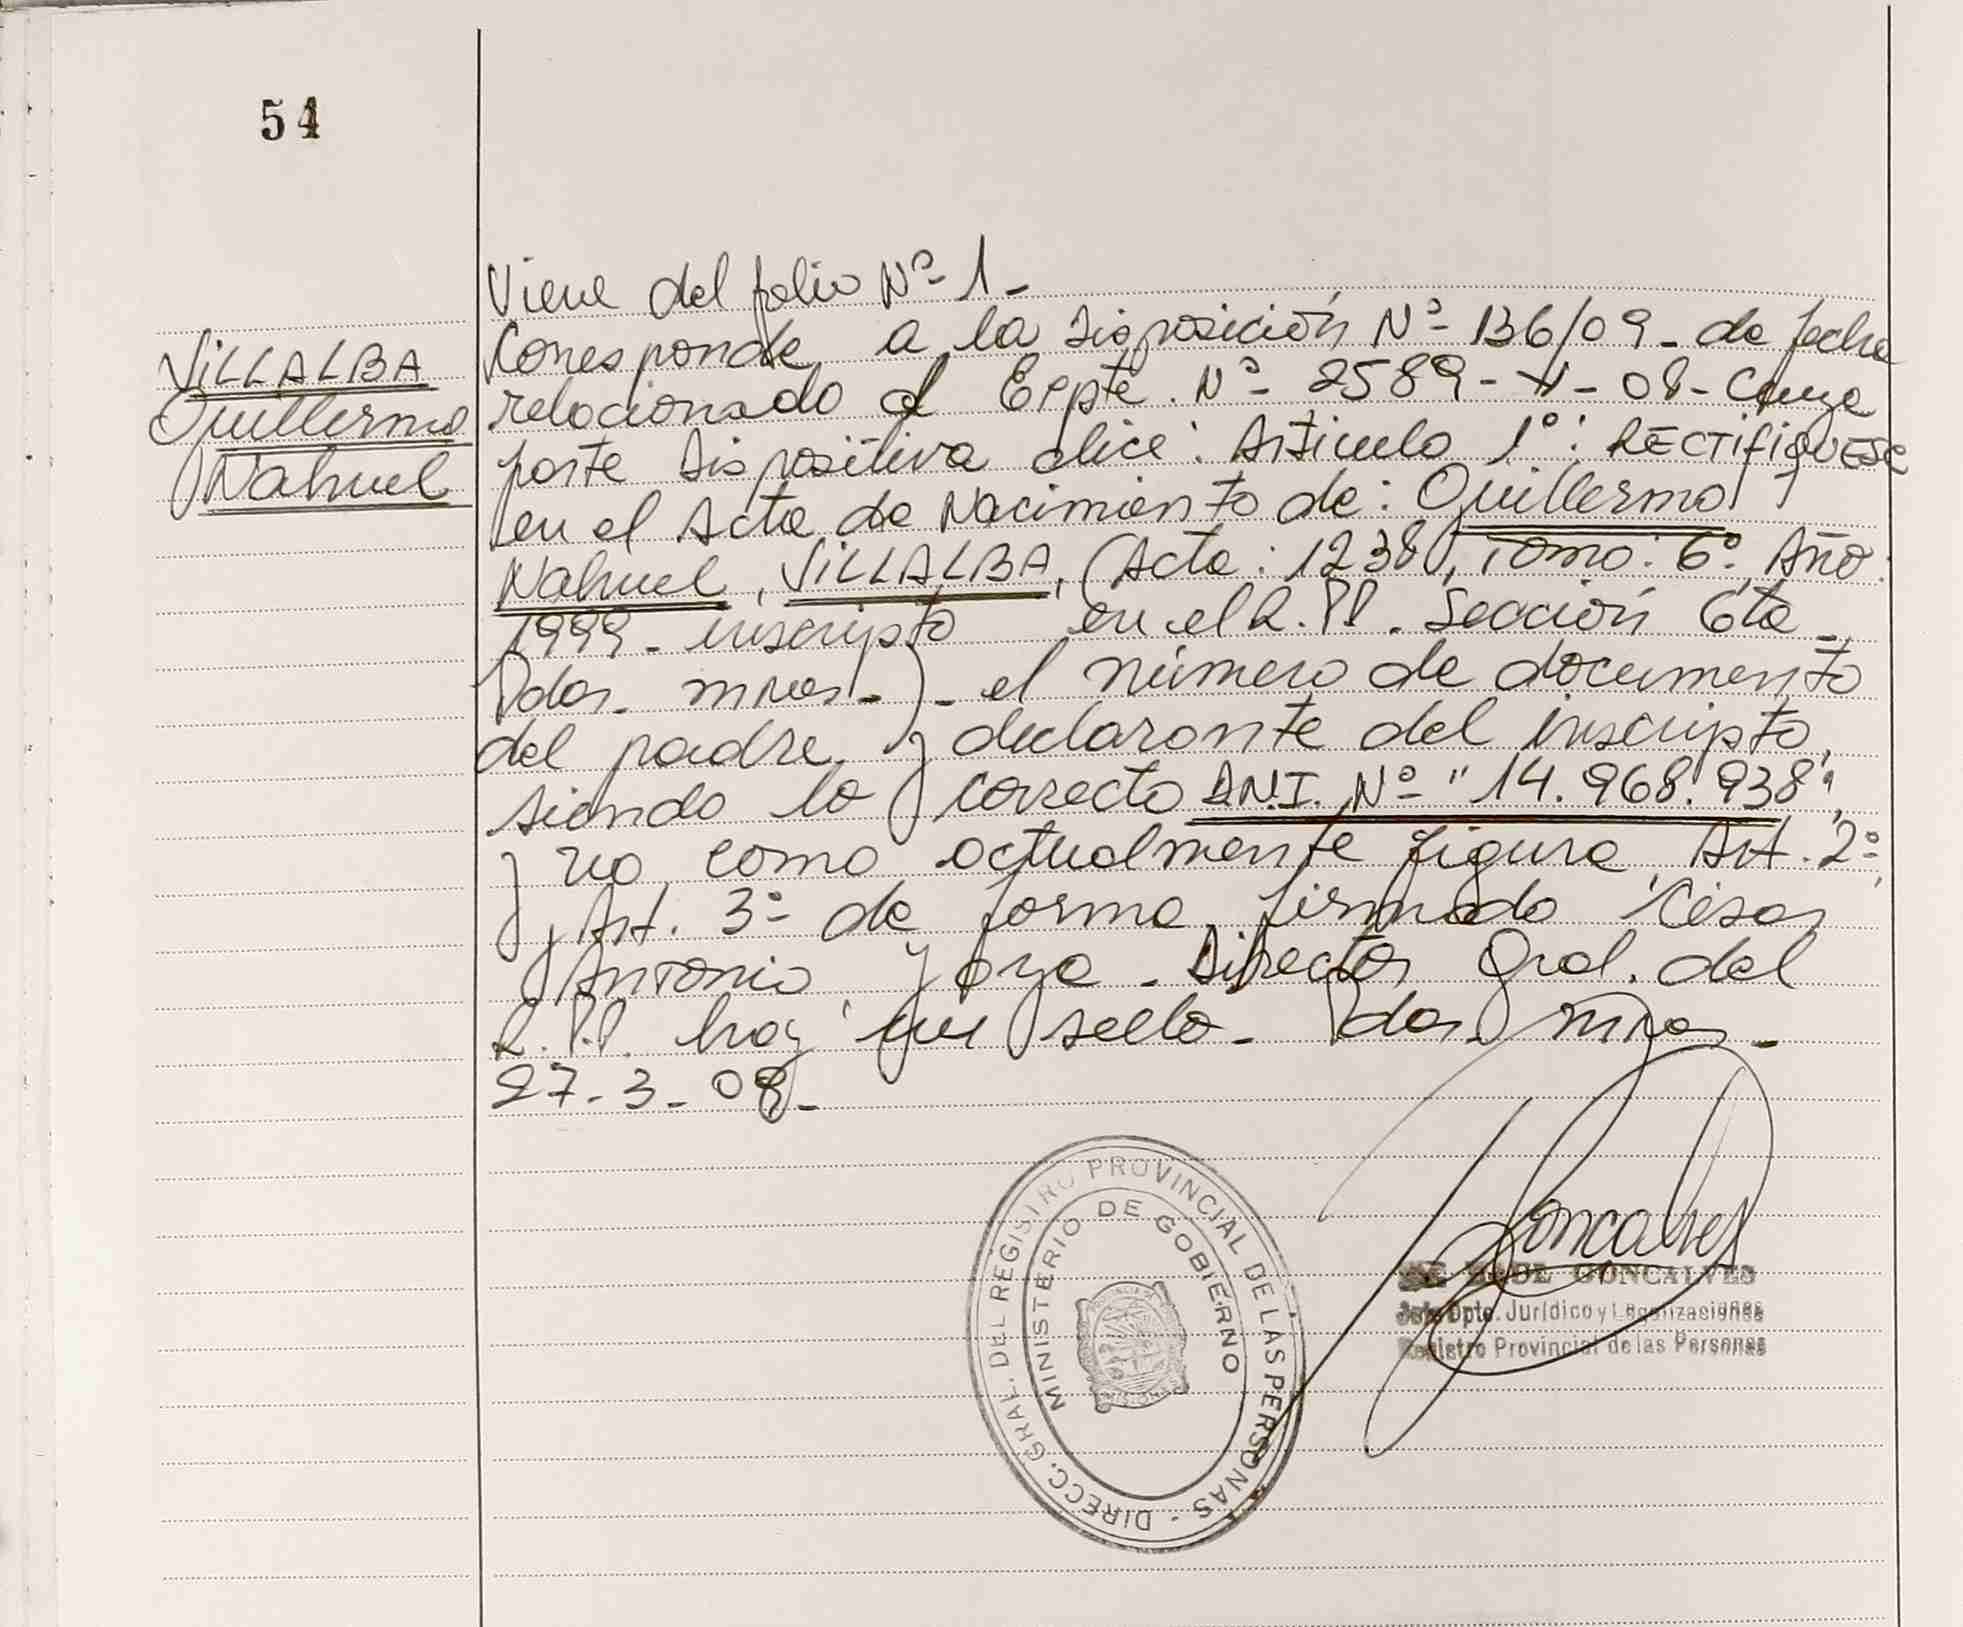 54
Viene del folio Nº 1-
VILLALBA
Guillermo
Nahuel
Corresponde a la Disposición Nº 136/09- de fecha
relacionado al Expte. Nº 2589-V-08- Cuya
parte Dispositiva dice: Articulo 1º: RECTIFIQUESE
en el Acta de Nacimiento de: Guillermo
Nahuel, VILLALBA, (Acta: 1238, Tomo: 6º, Año:
1999- inscripto en el R.PP. Sección 6ta-
Pdas. Mnes.-)- el número de documento
del padre y declarante del inscripto,
siendo lo correcto D.N.I. Nº "14.968.938",
y no como actualmente figura, Art. 2º,
y Art. 3º de forma, firmado César
Antonio, Joya. Director Gral. del
R.P.P. hay un sello- Pdas. Mnes-
27-3-09-
DIRECC. GRAL. DEL REGISTRO PROVINCIAL DE LAS PERSONAS -
MINISTERIO DE GOBIERNO
MISIONES
Goncalves
JOSE GONCALVES
Jefe Dpto. Jurídico y Legalizaciones
Registro Provincial de las Personas